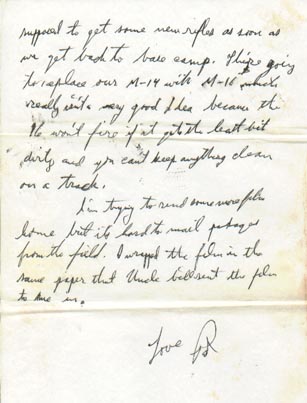 supposed to get some new rifles as soon as
we get back to base camp. They're going
to replace our M-14 with M-16 which
really isn't a very good Idea because the
16 won't fire if it gets the least bit
dirty and you can't keep anything clean
on a track.
I'm trying to send some more film
home but its hard to mail packages
from the field. I wrapped the film in the
same paper that Uncle Bill sent the film
to me in.
Love